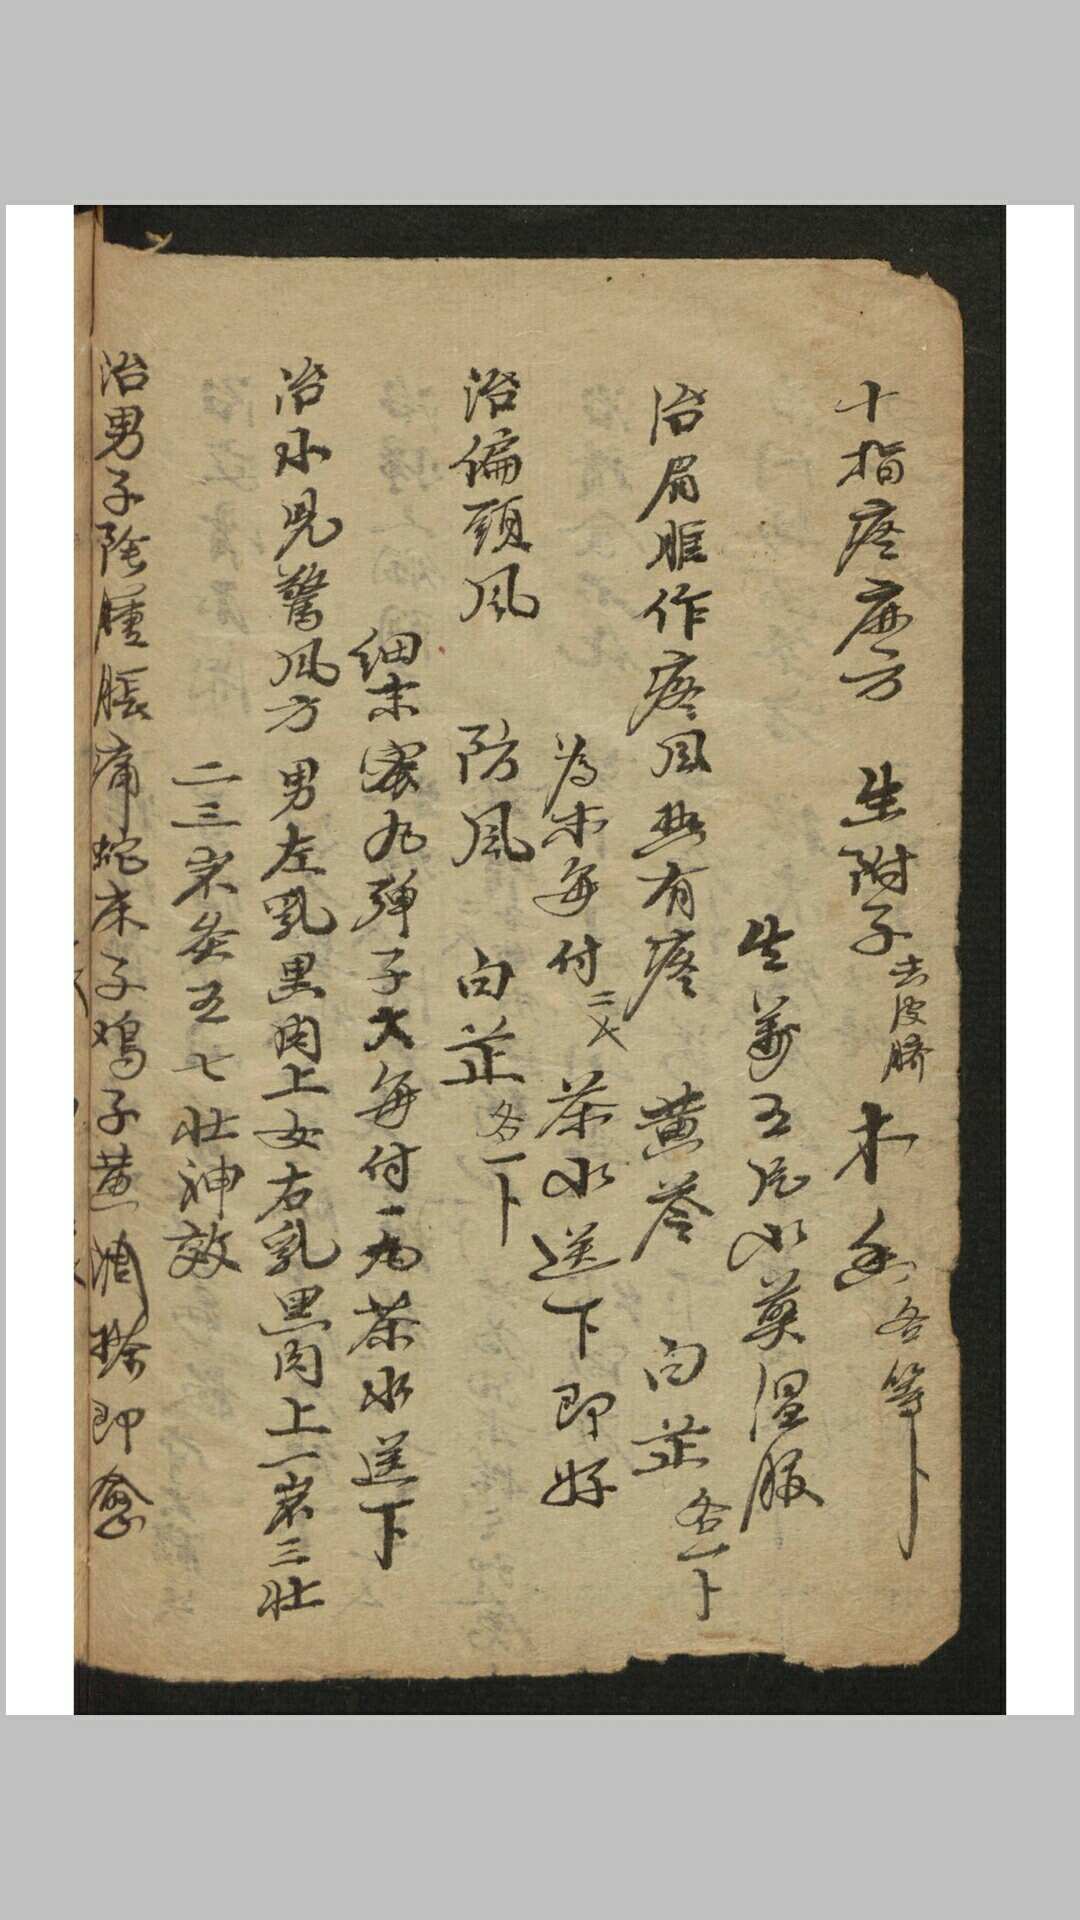 十指疼麻方 生附子去皮臍 木香各等卜
生姜五片水煎温服
治眉眶作疼風熱有疼 黄芩 白芷各一卜
為末每付二戈茶水送下即好
治偏頭風 防風 白芷各一卜
細末蜜丸弹子大每付一丸茶水送下
治小児驚风方 男左乳黒肉上女右乳黒肉上一岁三壮
二三岁灸五七壮神效
治男子陰腫脹痛蛇床子鸡子黄调搽即愈